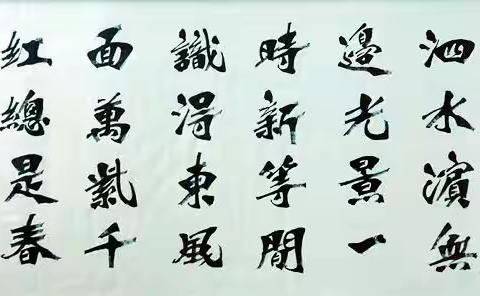 泗水濱無
邊光景一
時新等閒
識得東風
面萬紫千
紅總是春